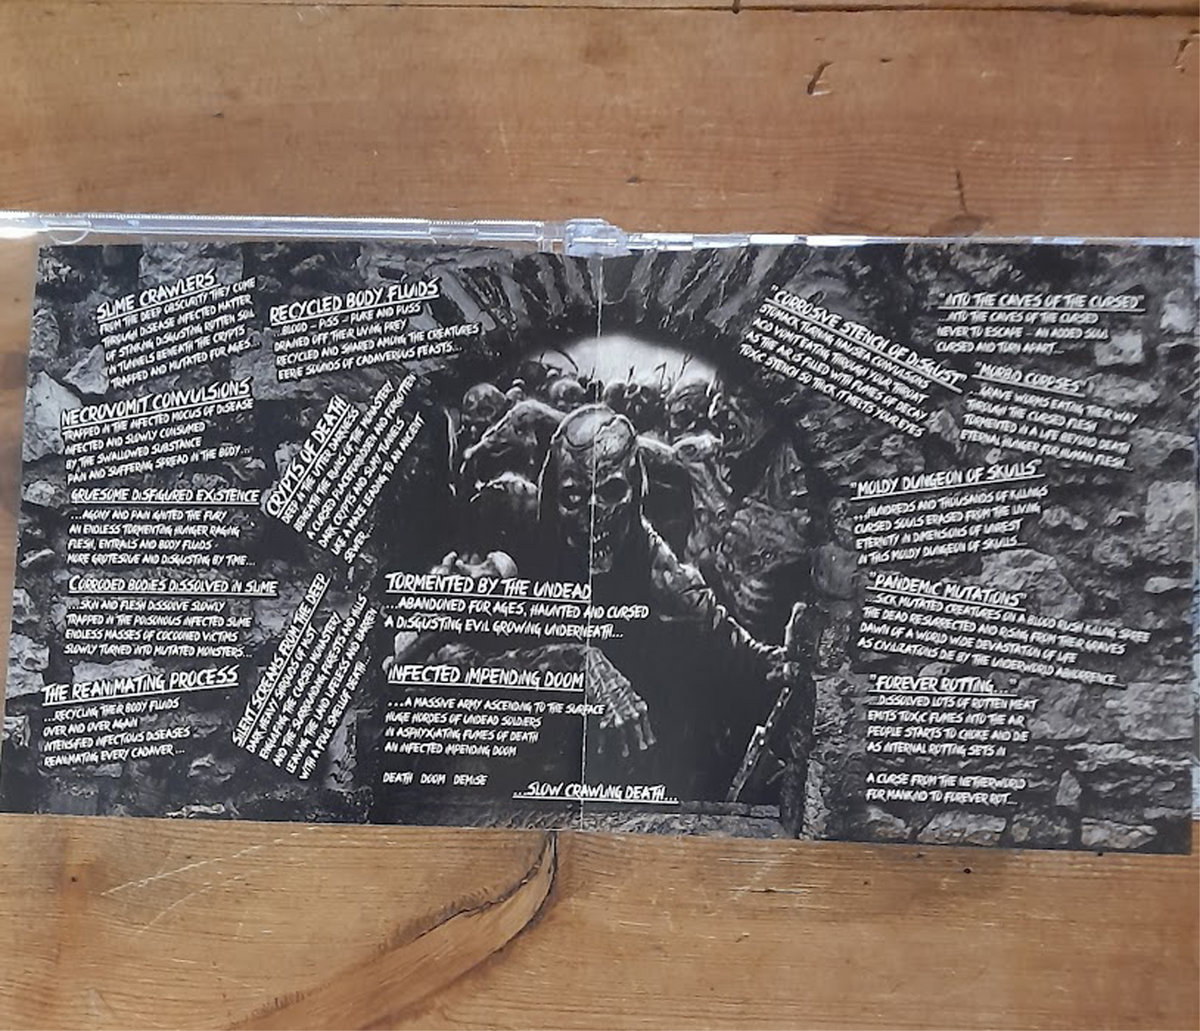 SLIME CRAWLERS
FROM THE DEEP OBSCURITY THEY COME
THROUGH DISEASE INFECTED MATTER
OF STINKING DISGUSTING ROTTEN SOIL
IN TUNNELS BENEATH THE CRYPTS
TRAPPED AND MUTATED FOR AGES...
RECYCLED BODY FLUIDS
...BLOOD - PISS - PUKE AND PUSS
DRAINED OFF THEIR LIVING PREY
RECYCLED AND SHARED AMONG THE CREATURES
EERIE SOUNDS OF CADAVEROUS FEASTS...
NECROVOMIT CONVULSIONS
TRAPPED IN THE INFECTED MOCUS OF DISEASE
INFECTED AND SLOWLY CONSUMED
BY THE SWALLOWED SUBSTANCE
PAIN AND SUFFERING SPREAD IN THE BODY...
GRUESOME DISFIGURED EXISTENCE
...AGONY AND PAIN IGNITED THE FURY
AN ENDLESS TORMENTING HUNGER RAGING
FLESH, ENTRAILS AND BODY FLUIDS
MORE GROTESQUE AND DISGUSTING BY TIME...
CORRODED BODIES DISSOLVED IN SLIME
...SKIN AND FLESH DISSOLVE SLOWLY
TRAPPED IN THE POISONOUS INFECTED SLIME
ENDLESS MASSES OF COCOONED VICTIMS
SLOWLY TURNED INTO MUTATED MONSTERS...
THE REANIMATING PROCESS
...RECYCLING THEIR BODY FLUIDS
OVER AND OVER AGAIN
INTENSIFIED INFECTIOUS DISEASES
REANIMATING EVERY CADAVER...
CRYPTS OF DEATH
DEEP IN THE UTTER DARKNESS
BENEATH THE RUINS OF THE MONASTERY
A CURSED PLACE FORSAKEN AND FORGOTTEN
DARK CRYPTS AND SLIMY TUNNELS
LIKE A MAZE LEADING TO AN ANCIENT
SEWER...
SILENT SCREAMS FROM THE DEEP
DARK HEAVY SHROUDS OF MIST
ENGULFING THE CURSED MONASTERY
AND THE SURROUNDING FORESTS AND HILLS
LEAVING THE LAND LIFELESS AND BARREN
WITH A FOUL SMELL OF DEATH...
TORMENTED BY THE UNDEAD
...ABANDONED FOR AGES, HAUNTED AND CURSED
A DISGUSTING EVIL GROWING UNDERNEATH...
INFECTED IMPENDING DOOM
...A MASSIVE ARMY ASCENDING TO THE SURFACE
HUGE HORDES OF UNDEAD SOLDIERS
IN ASPHYXIATING FUMES OF DEATH
AN INFECTED IMPENDING DOOM
DEATH DOOM DEMISE
...SLOW CRAWLING DEATH...
"CORROSIVE STENCH OF DISGUST"
STOMACK TURNING NAUSEA CONVULSIONS
ACID VOMIT EATING THROUGH YOUR THROAT
AS THE AIR IS FILLED WITH FUMES OF DECAY
TOXIC STENCH SO THICK IT MELTS YOUR EYES
"INTO THE CAVES OF THE CURSED"
...INTO THE CAVES OF THE CURSED
NEVER TO ESCAPE - AN ADDED SOUL
CURSED AND TORN APART...
"MORBID CORPSES"
...GRAVE WORMS EATING THEIR WAY
THROUGH THE CURSED FLESH
TORMENTED IN A LIFE BEYOND DEATH
ETERNAL HUNGER FOR HUMAN FLESH...
"MOLDY DUNGEON OF SKULLS"
...HUNDREDS AND THOUSANDS OF KILLINGS
CURSED SOULS ERASED FROM THE LIVING
ETERNITY IN DIMENSIONS OF UNREST
IN THIS MOLDY DUNGEON OF SKULLS...
"PANDEMIC MUTATIONS"
...SICK MUTATED CREATURES ON A BLOOD RUSH KILLING SPREE
THE DEAD RESURRECTED AND RISING FROM THEIR GRAVES
DAWN OF A WORLD WIDE DEVASTATION OF LIFE
AS CIVILIZATIONS DIE BY THE UNDERWORLD ABHORRENCE...
"FOREVER ROTTING..."
...DISSOLVED LOTS OF ROTTEN MEAT
EMITS TOXIC FUMES INTO THE AIR
PEOPLE STARTS TO CHOKE AND DIE
AS INTERNAL ROTTING SETS IN
A CURSE FROM THE NETHERWORLD
FOR MANKIND TO FOREVER ROT...